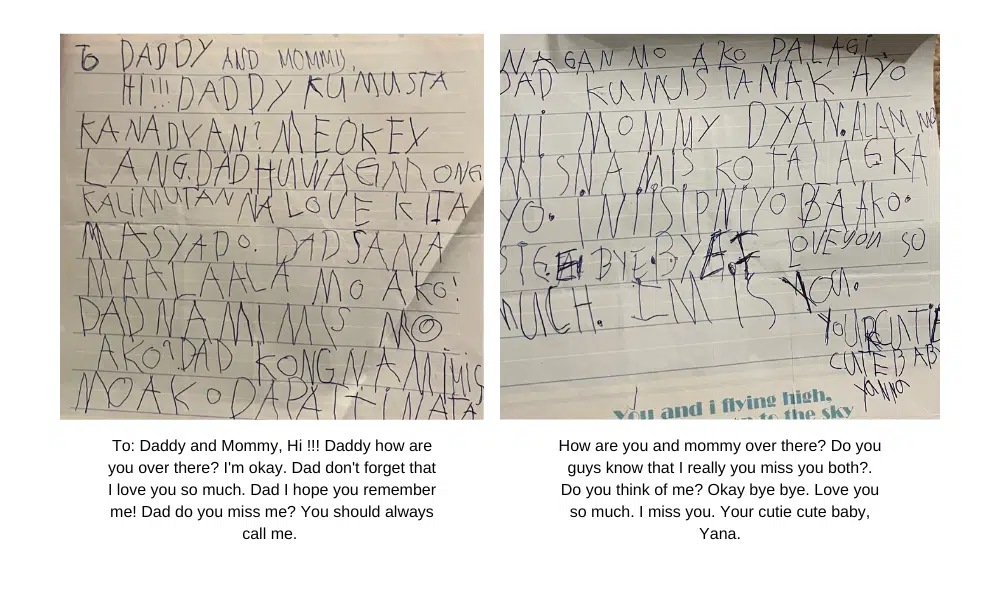 To DADDY AND MOMMY,
HI!!! DADDY KUMUSTA
KANADYAN? MEOKEY
LANG. DAD HUWAG MONG
KALIMUTAN NA LOVE KITA
MASYADO. DAD SANA
MAALAALA MO AKO!
DAD NAMIMIS MO
AKO? DAD KONG NAMIMIS
MO AKO DAPAT TINATA
WAGAN MO AKO PALAGI
DAD KUMUSTANAK AYO
NI MOMMY DYAN. ALAM MO
MISNAMIS KO TALAGKA
YO. INISIPNIYO BA AKO.
SIGE BYE BYE. I LOVE YOU SO
MUCH. I MIS YOU.
YOUR CUTIE
CUTE BABY
YANNA
You and i flying high,
to the sky
To: Daddy and Mommy, Hi !!! Daddy how are
you over there? I'm okay. Dad don't forget that
I love you so much. Dad I hope you remember
me! Dad do you miss me? You should always
call me.
How are you and mommy over there? Do you
guys know that I really you miss you both?.
Do you think of me? Okay bye bye. Love you
so much. I miss you. Your cutie cute baby,
Yana.